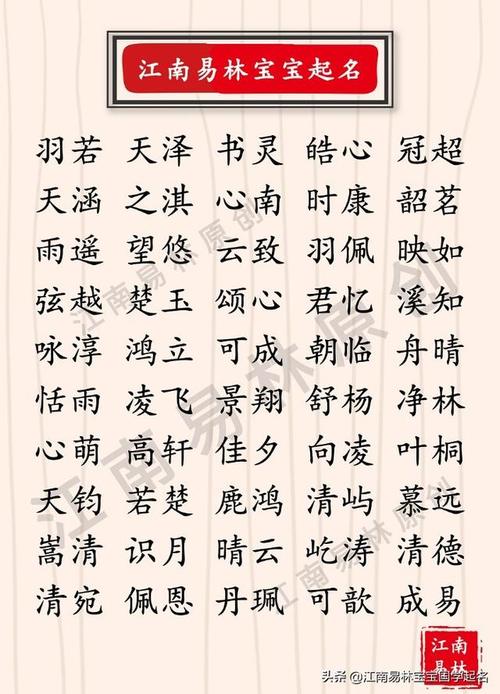 江南易林宝宝起名
羽若 天泽 书灵 皓心 冠超
天涵 之淇 心南 时康 韶茗
雨遥 望悠 云致 羽佩 映如
弦越 楚玉 颂心 君忆 溪知
咏淳 鸿立 可成 朝临 舟晴
恬雨 凌飞 景翔 舒杨 净林
心萌 高轩 佳夕 向凌 叶桐
天钧 若楚 鹿鸿 清屿 慕远
嵩清 识月 晴云 屹涛 清德
清宛 佩恩 丹珮 可歆 成易
江南易林原创
江南易林原创
江南易林原创
江南
易林
头条 @江南易林宝宝国学起名